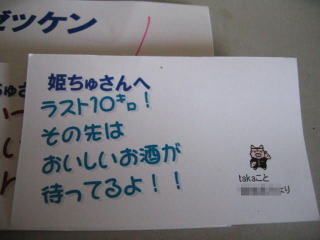 ゼッケン
姫ちゅさんへ
ラスト10㌔!
その先は
おいしいお酒が
待ってるよ!!
takaこと
より